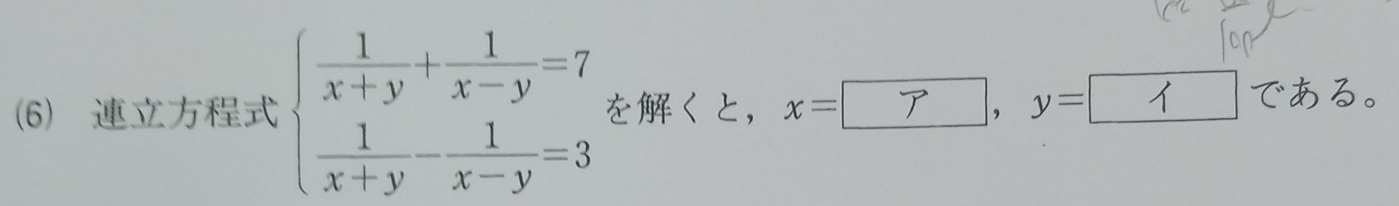 (6) 連立方程式 { 1/(x+y) + 1/(x−y) = 7
1/(x+y) − 1/(x−y) = 3 を解くと, x= ア , y= イ である。